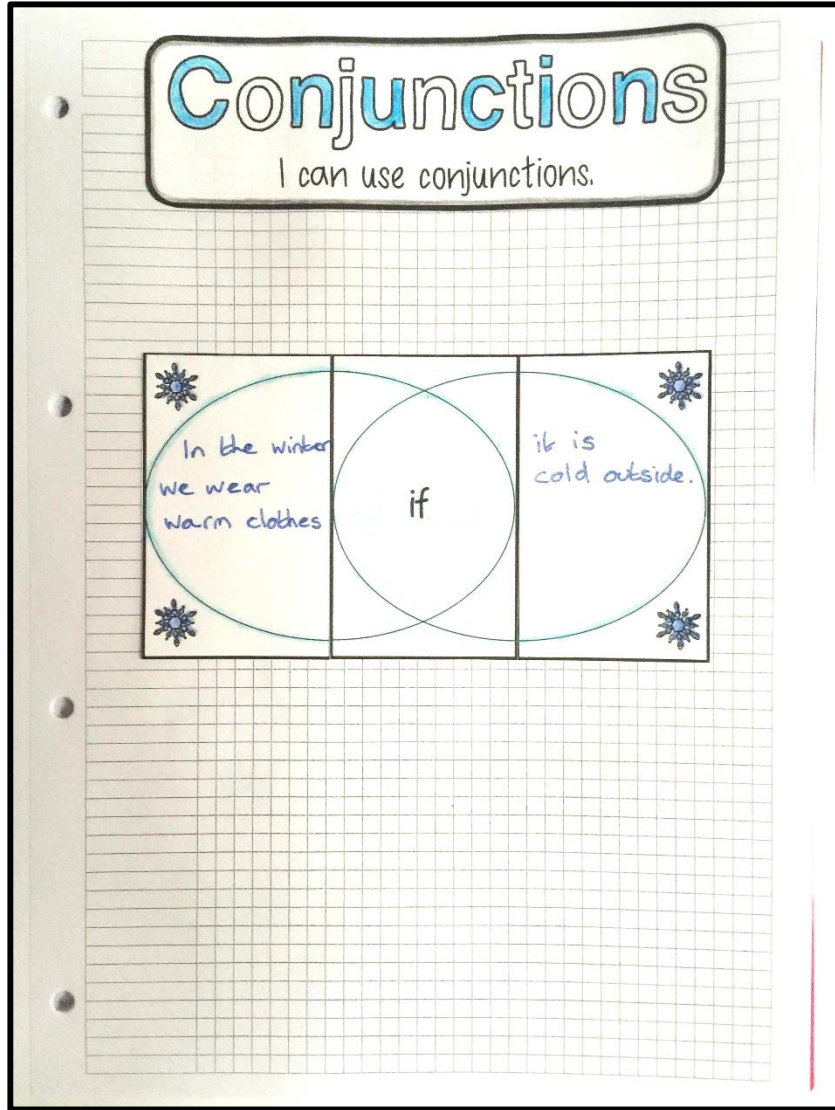 Conjunctions
I can use conjunctions.
In the winter
we wear
warm clothes
if
it is
cold outside.